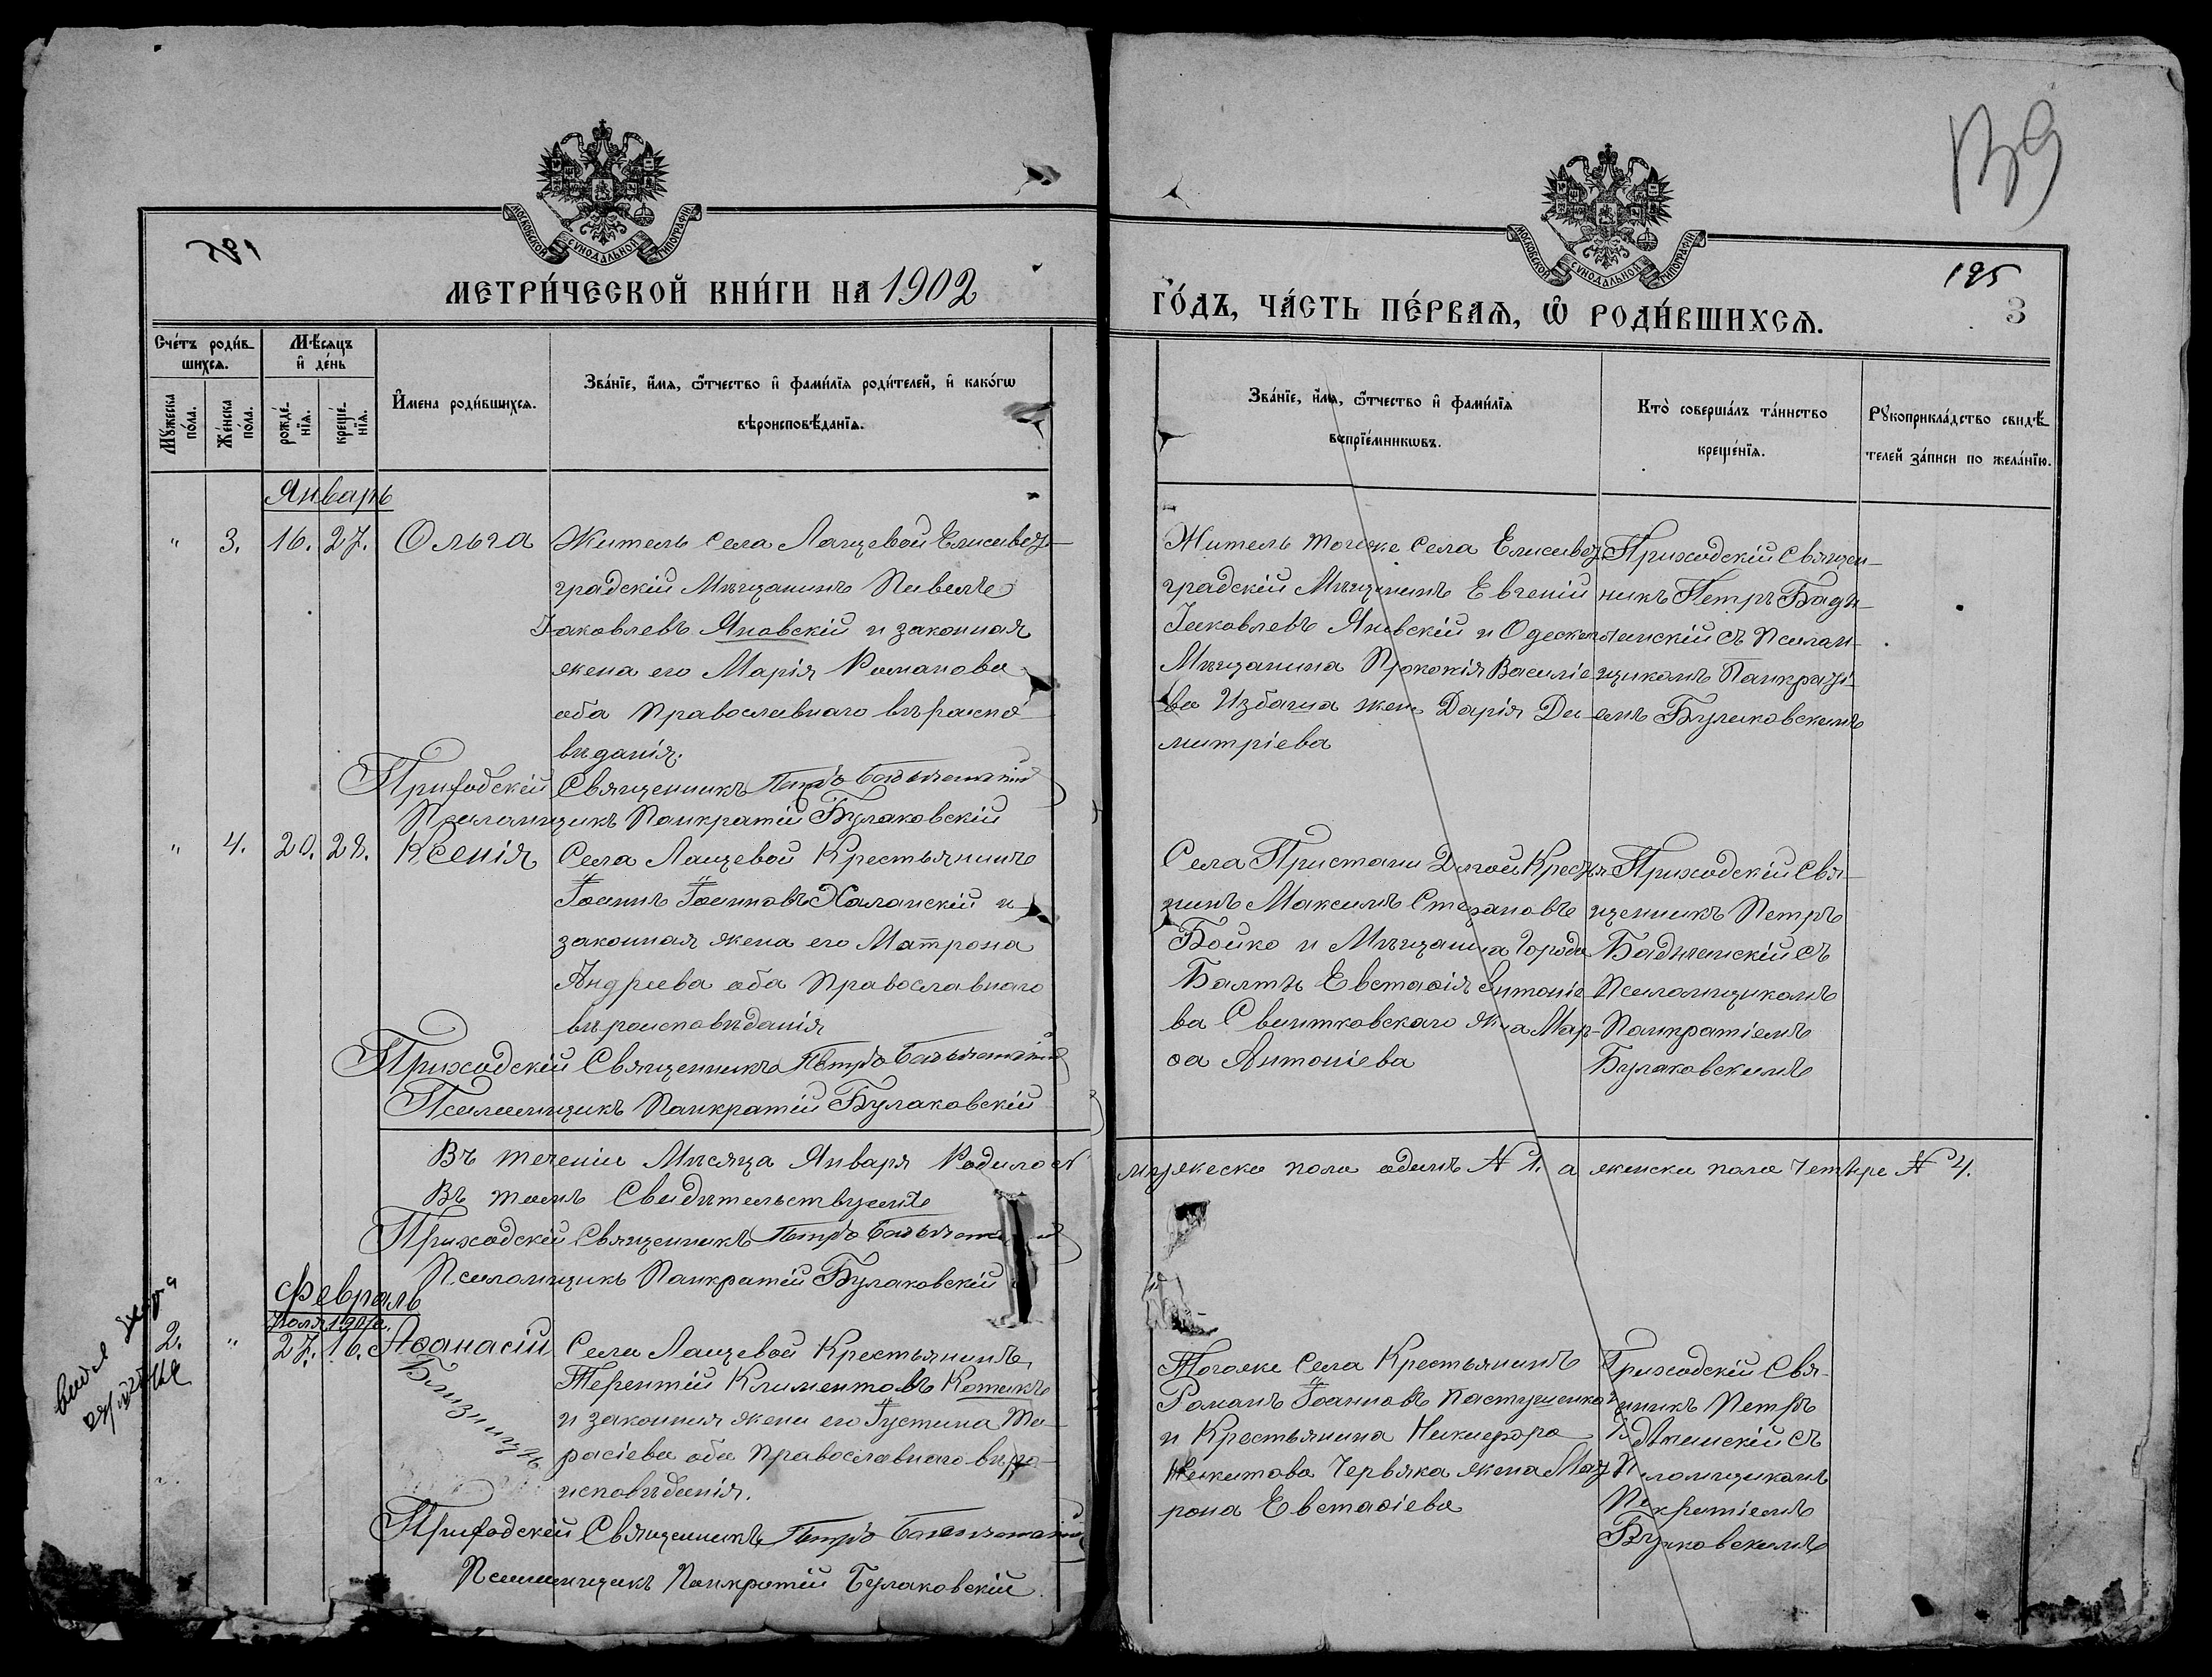 МОСКОВСКОЙ СУНОДАЛЬНОЙ ТИПОГРАФІИ
МЕТРИ́ЧЕСКОЙ КНИ́ГИ НА 1902
Сче́тъ роди́в-
шихся.
Мѣ́сяцъ
и҆ де́нь
Му́жеска
по́ла.
Же́нска
по́ла.
рожде́-
нїя.
креще́-
нїя.
И҆мена роди́вшихся.
Зва́нїе, и҆́мя, ѻ҆́тчество и҆ фами́лїя роди́телей, и҆ како́гѡ
вѣроисповѣ́данїя.
Январь
" 3. 16. 27. Ольга
Житель села Лащевой Елисавет-
градскій Мѣщанинъ Павелъ
Іаковлевъ Яновскій и законная
жена его Марія Романова
оба Православнаго вѣроиспо-
вѣданія.
Приходскій Священникъ Петръ
Псаломщикъ Панкратій Булаковскій
" 4. 20. 28. Ксенія
Села Лащевой Крестьянинъ
Іоаннъ Іоанновъ Халанскій и
законная жена его Матрона
Андреева оба Православнаго
вѣроисповѣданія
Приходскій Священникъ Петръ
Псаломщикъ Панкратій Булаковскій
Въ теченіи Мѣсяца Января Родилось
Въ томъ Свидѣтельствуемъ
Приходскій Священникъ Петръ
Псаломщикъ Панкратій Булаковскій
Февраль
2. " 27. 16. Аѳанасій
Близнецъ
Села Лащевой Крестьянинъ
Терентій Климентовъ Котикъ
и законная жена его Іустина Та-
расіева оба Православнаго вѣро-
исповѣданія.
Приходскій Священникъ Петръ
Псаломщикъ Панкратій Булаковскій
139
МОСКОВСКОЙ СУНОДАЛЬНОЙ ТИПОГРАФІИ
195
3
ГО́ДЪ, ЧА́СТЬ ПЕ́РВАЯ, Ѡ҆ РОДИ́ВШИХСЯ.
Зва́нїе, и҆́мя, ѻ҆́тчество и҆ фами́лїя
воспрїе́мникѡвъ.
Кто̀ соверша́лъ та́инство
креще́нїя.
Рꙋкоприкла́дство свидѣ́-
телей за́писи по жела́нїю.
Житель тогоже села Елисавет-
градскій Мѣщанинъ Евгеній
Іаковлевъ Яновскій и Одескаго
Мѣщанина Прокопія Василіе-
ва Избаша жена Дарія Ди-
митріева
Приходскій Священ-
никъ Петръ
съ Псалом-
щикомъ Панкраті-
емъ Булаковскимъ
Села Пристани Дмгой Крестья-
нинъ Максимъ Стефановъ
Бойко и Мѣщанина города
Балты Евстафія Антоніе-
ва Свитковскаго жена Мар-
ѳа Антоніева
Приходскій Свя-
щенникъ Петръ
съ
Псаломщикомъ
Панкратіемъ
Булаковскимъ
мужеска пола одинъ № 1. а женска пола четыре № 4.
Тогоже села Крестьянинъ
Романъ Іоанновъ Пастушенко
и Крестьянина Никифора
Никитова Червяка жена Мат-
рона Евстафіева
Приходскій Свя-
щникъ Петръ
съ
Псаломщикомъ
Панкратіемъ
Булаковскимъ